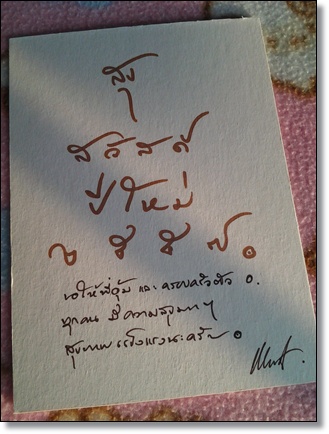 สุข
สวัสดี
ปีใหม่
๒๕๕๗
ขอให้พี่อุ้ม และ ครอบครัว
ทุกคน มีความสุขมาก ๆ
สุขภาพแข็งแรงนะครับ